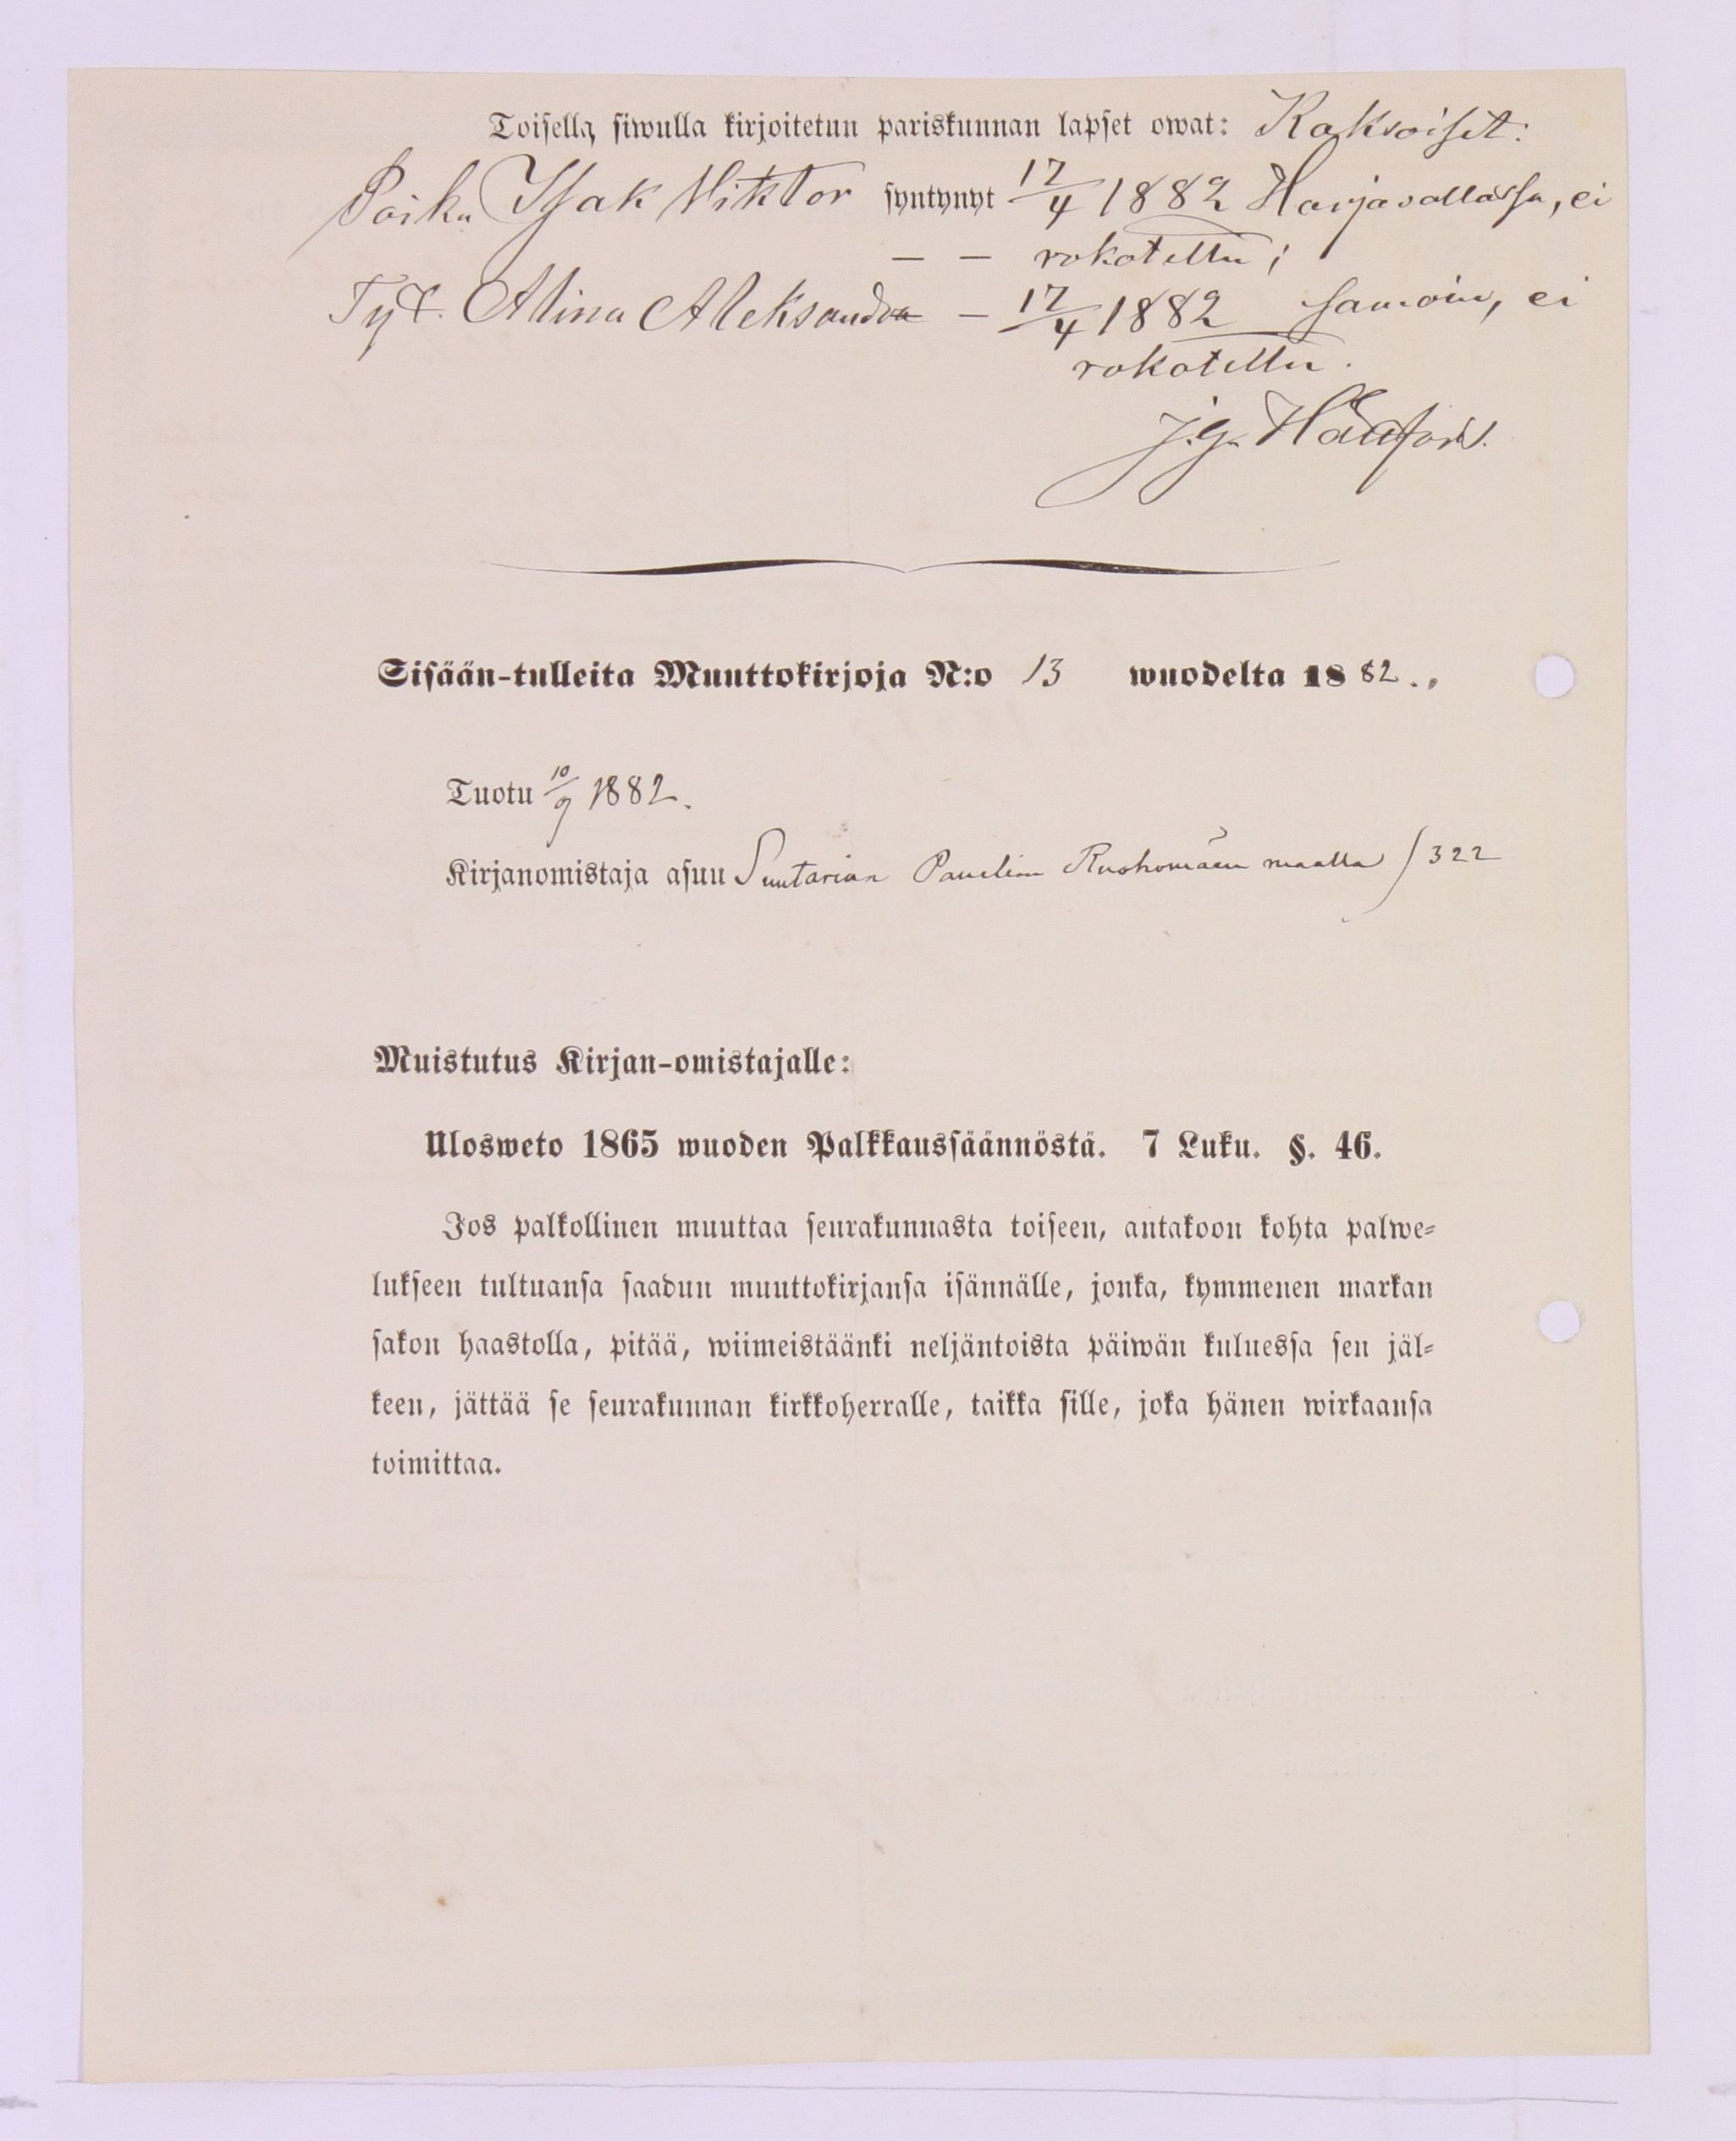 Toisella siwulla kirjoitetun pariskunnan lapset owat: Kaksoiset:
Poika Isak Viktor syntynyt 17/4 1882 Harjavallassa, ei
— — rokotettu;
Tyt. Alina Aleksandra — 17/4 1882 samoin, ei
rokotettu.
J. G.
Sisään-tulleita Muuttokirjoja N:o 13 wuodelta 1882.
Tuotu 10/9 1882.
Kirjanomistaja asuu Suutarian Paueliin Ruohomäen maalla /322
Muistutus Kirjan-omistajalle:
Ulosweto 1865 wuoden Palkkaussäännöstä. 7 Luku. §. 46.
Jos palkollinen muuttaa seurakunnasta toiseen, antakoon kohta palwe-
lukseen tultuansa saadun muuttokirjansa isännälle, jonka, kymmenen markan
sakon haastolla, pitää, wiimeistäänki neljäntoista päiwän kuluessa sen jäl-
keen, jättää se seurakunnan kirkkoherralle, taikka sille, joka hänen wirkaansa
toimittaa.